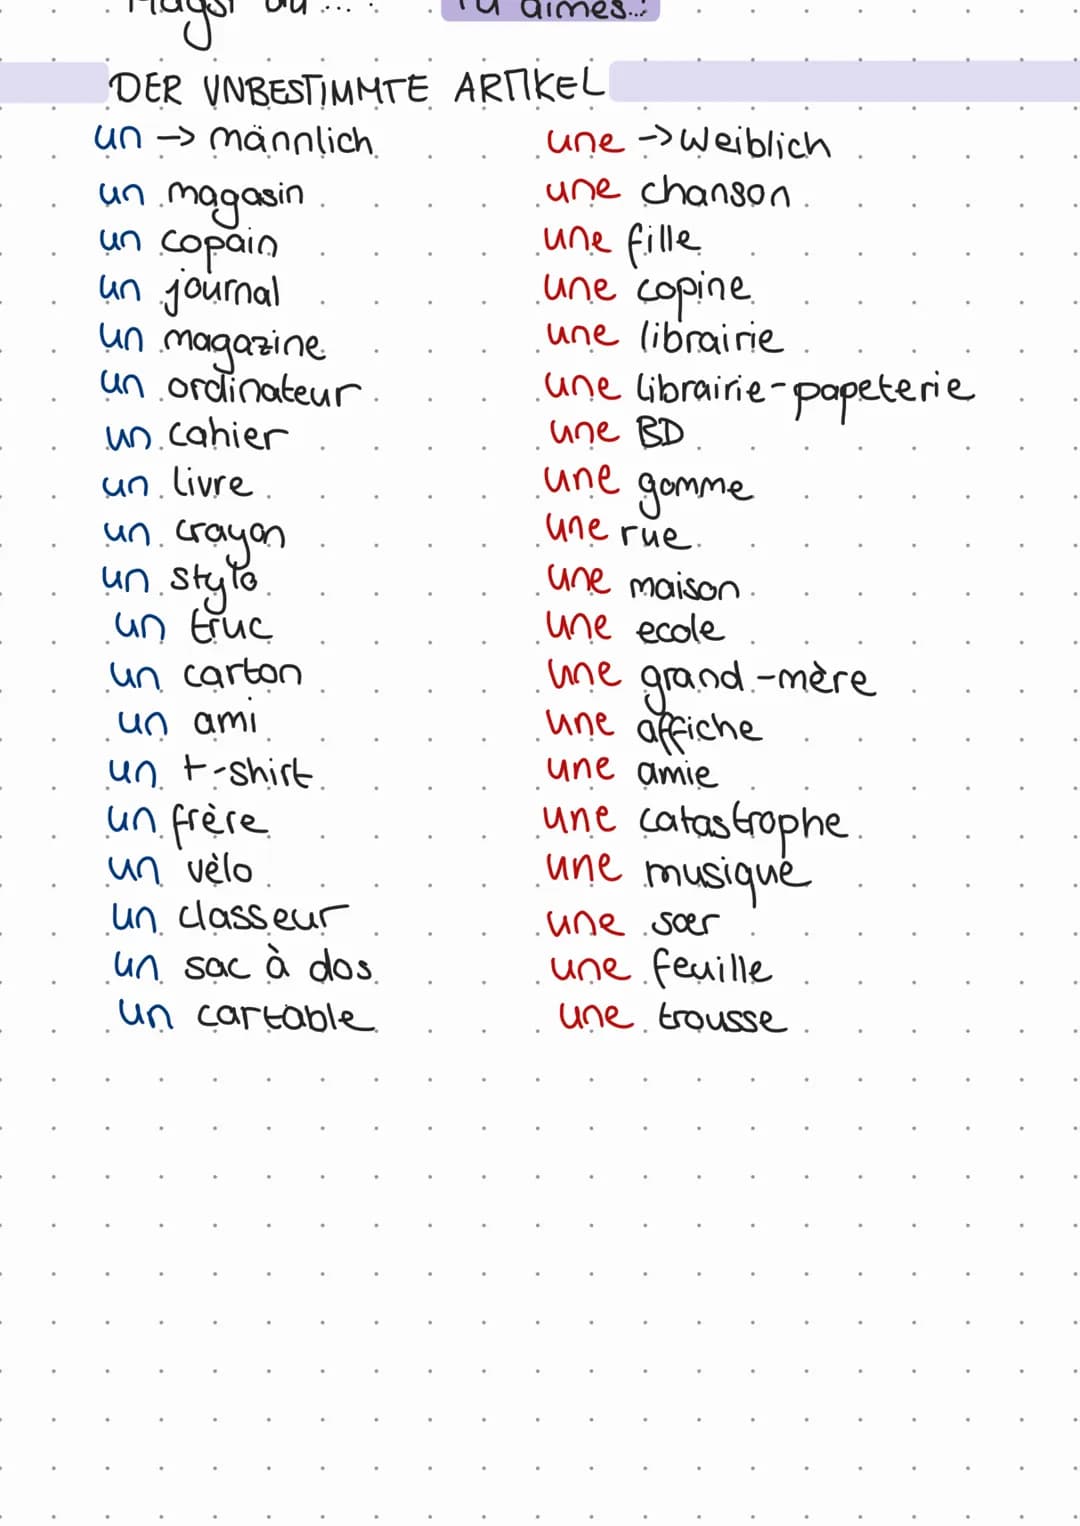 Magst du ...
Tu aimes...:
DER UNBESTIMMTE ARTIKEL
un -> männlich
une -> weiblich
un magasin
une chanson
un copain
une fille
un journal
une copine
un magazine
une librairie
un ordinateur
une librairie-papeterie
un cahier
une BD
un livre
une gomme
un crayon
une rue
un stylo
une maison
un truc
une ecole
un carton
une grand-mère
un ami
une affiche
un t-shirt
une amie
un frère
une catastrophe
un vèlo
une musique
un classeur
une sœr
un sac à dos
une feuille
un cartable
une trousse